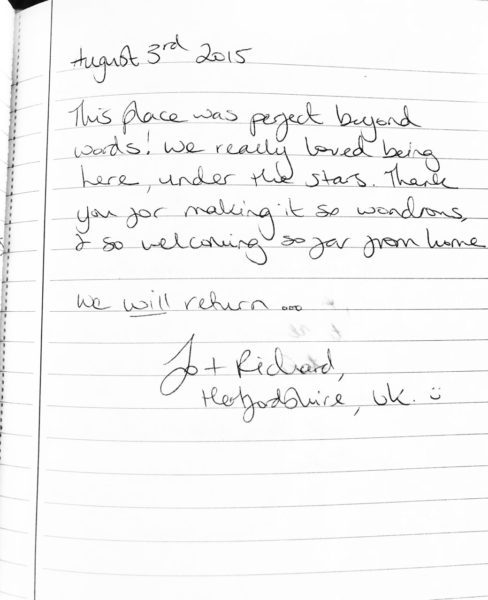 August 3rd 2015
This place was perfect beyond
words! We really loved being
here, under the stars. Thank
you for making it so wondrous,
& so welcoming so far from home
We will return ...
Jo + Richard,
Hertfordshire, UK. ☺